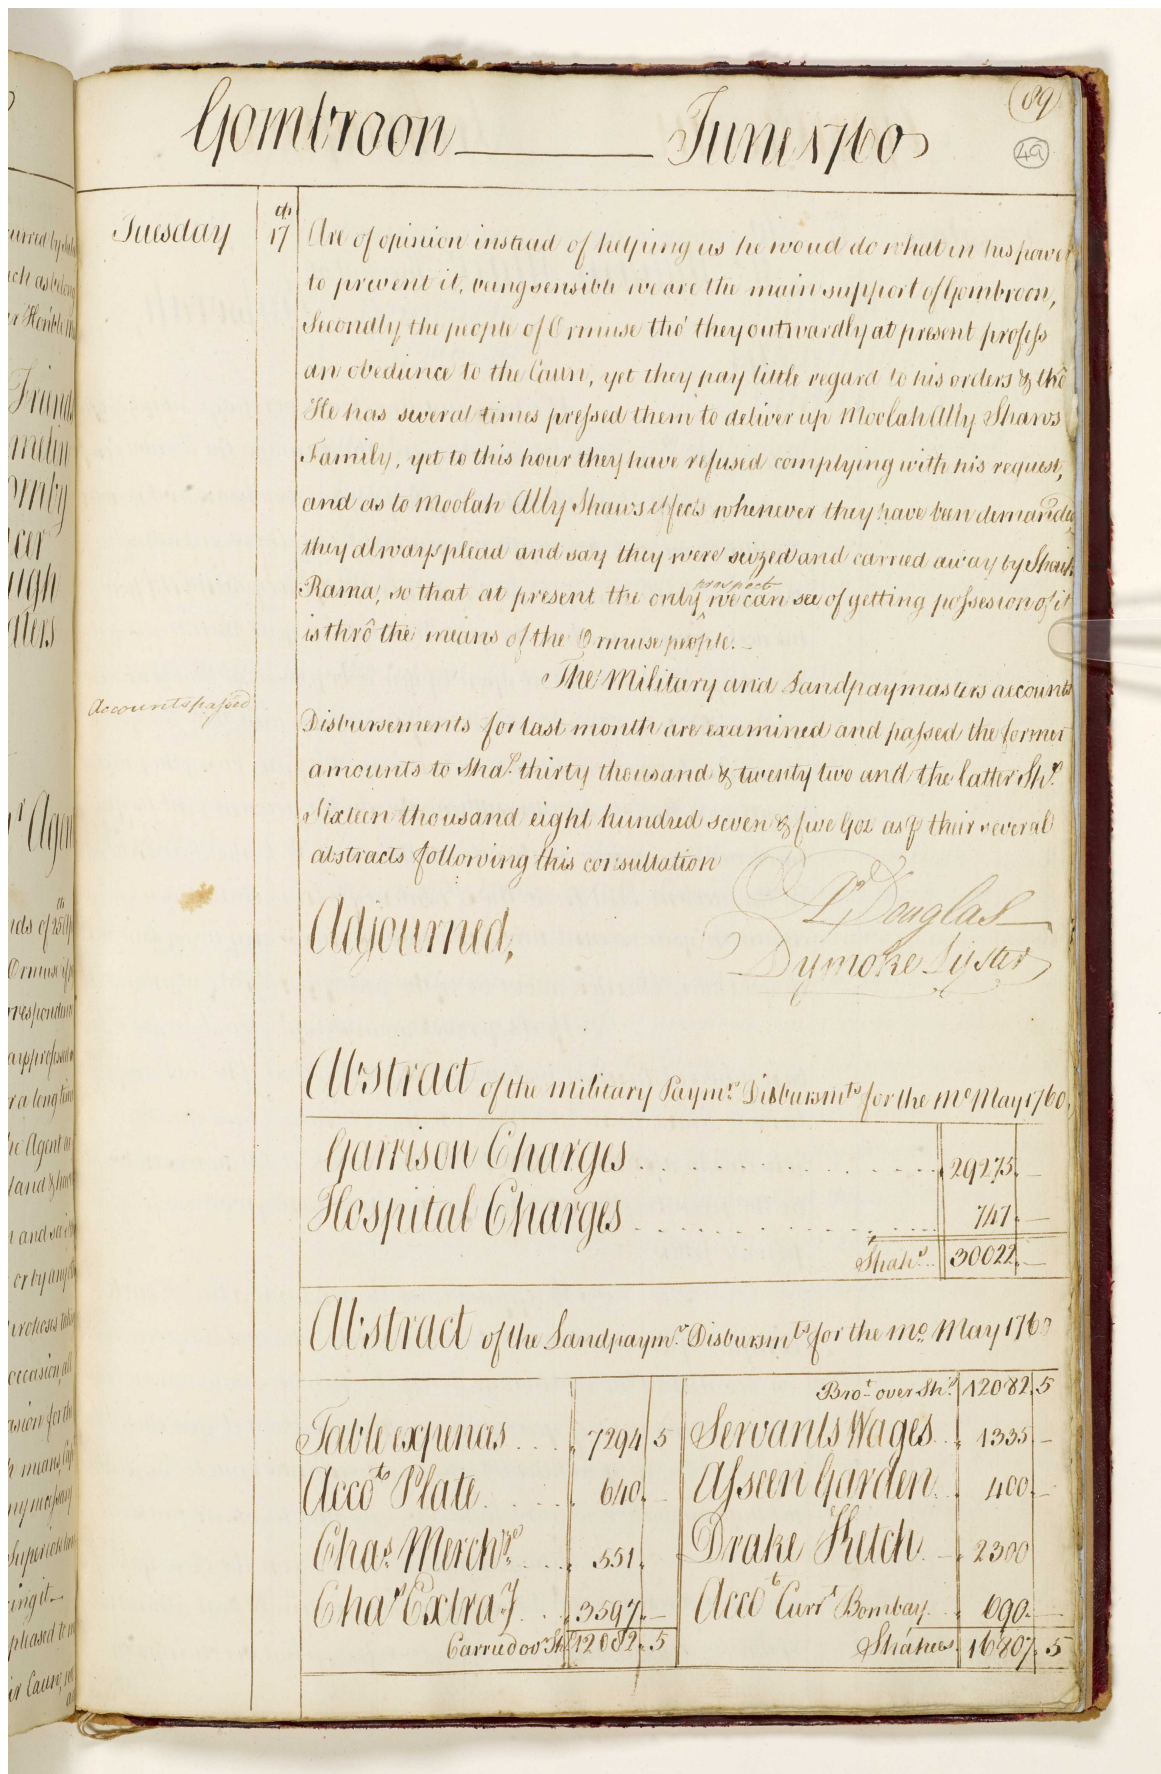 (89)
49
Gombroon June 1760
Tuesday 17th
Are of opinion instead of helping us he woud do what in his power
to prevent it, being sensible we are the main support of Gombroon,
Secondly the people of Ormuse tho' they outwardly at present profess
an obedience to the Caun, yet they pay little regard to his orders & tho
He has several times pressed them to deliver up Moolah Ally Shaws
Family, yet to this hour they have refused complying with his request,
and as to Moolah Ally Shaws effects whenever they have been demanded
they always plead and say they were seized and carried away by Shaik
Rama, so that at present the only prospect we can see of getting possesion of it
is thrô the means of the Ormuse people.
Accounts passed
The Military and Landpaymasters accounts
Disbursements for last month are examined and passed the former
amounts to Shas. thirty thousand & twenty two and the latter Shs.
Sixteen thousand eight hundred seven & five Goz as p their several
abstracts following this consultation
Adjourned,
Ar Douglas
Dymoke Lyster
Abstract of the military Paymrs. Disbursmts for the mo May 1760.
Garrison Charges 29275. —
Hospital Charges 747. —
Shahs. 30022. —
Abstract of the Landpaymrs. Disbursmts for the mo. May 1760
Table expences 7294 5
Accot Plate 640. —
Chas. Merchze 551.
Chas Extray 3597. —
Carried over Shs 12082. 5
Brot over Shs. 12082. 5
Servants Wages 1335. —
Asseen Garden 400. —
Drake Ketch 2300
Accot Currt Bombay 690. —
Shahees 16807. 5